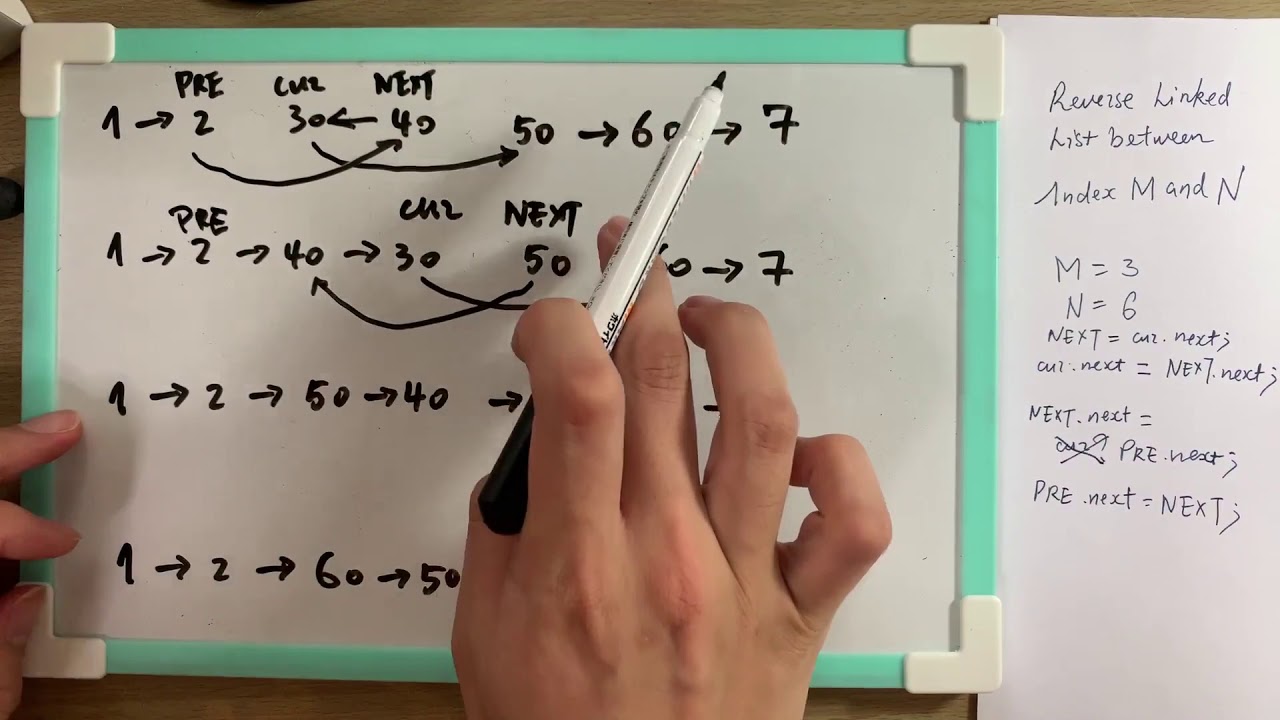 PRE CUR NEXT
1 → 2 30 ← 40 50 → 60 → 7
PRE CUR NEXT
1 → 2 → 40 → 30 50 60 → 7
1 → 2 → 50 → 40 →
1 → 2 → 60 → 50
Reverse Linked
List between
Index M and N
M = 3
N = 6
NEXT = cur.next;
cur.next = NEXT.next;
NEXT.next =
PRE.next;
PRE.next = NEXT;